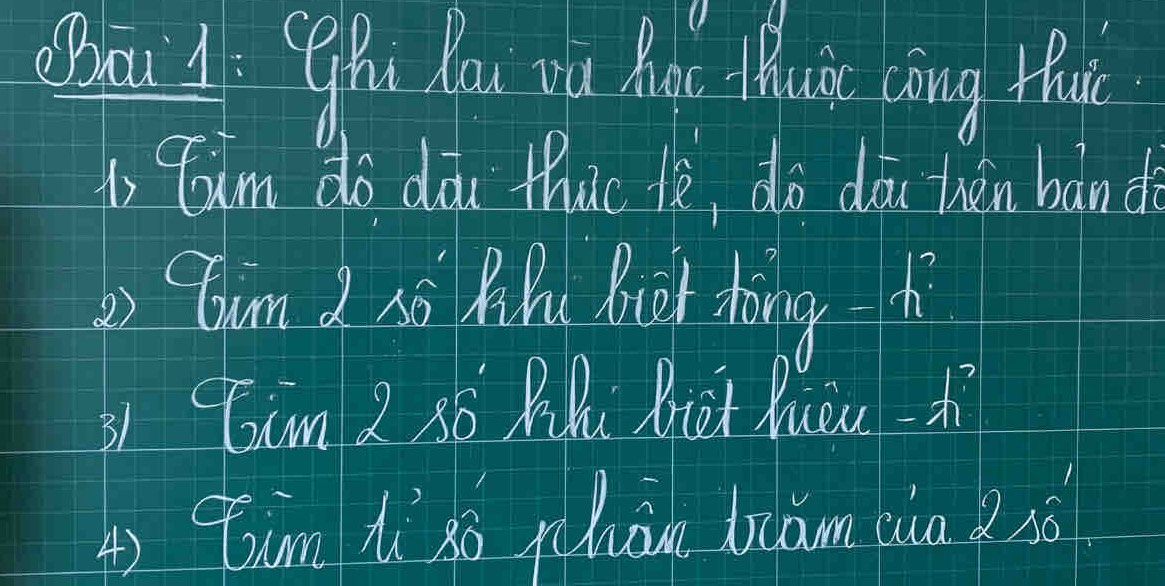 Bài 1: Ghi lại và học thuộc công thức.
1) Tìm độ dài thực tế, độ dài trên bản đồ
2) Tìm 2 số khi biết tổng - tỉ.
3) Tìm 2 số khi biết hiệu - tỉ
4) Tìm tỉ số phần trăm của 2 số.